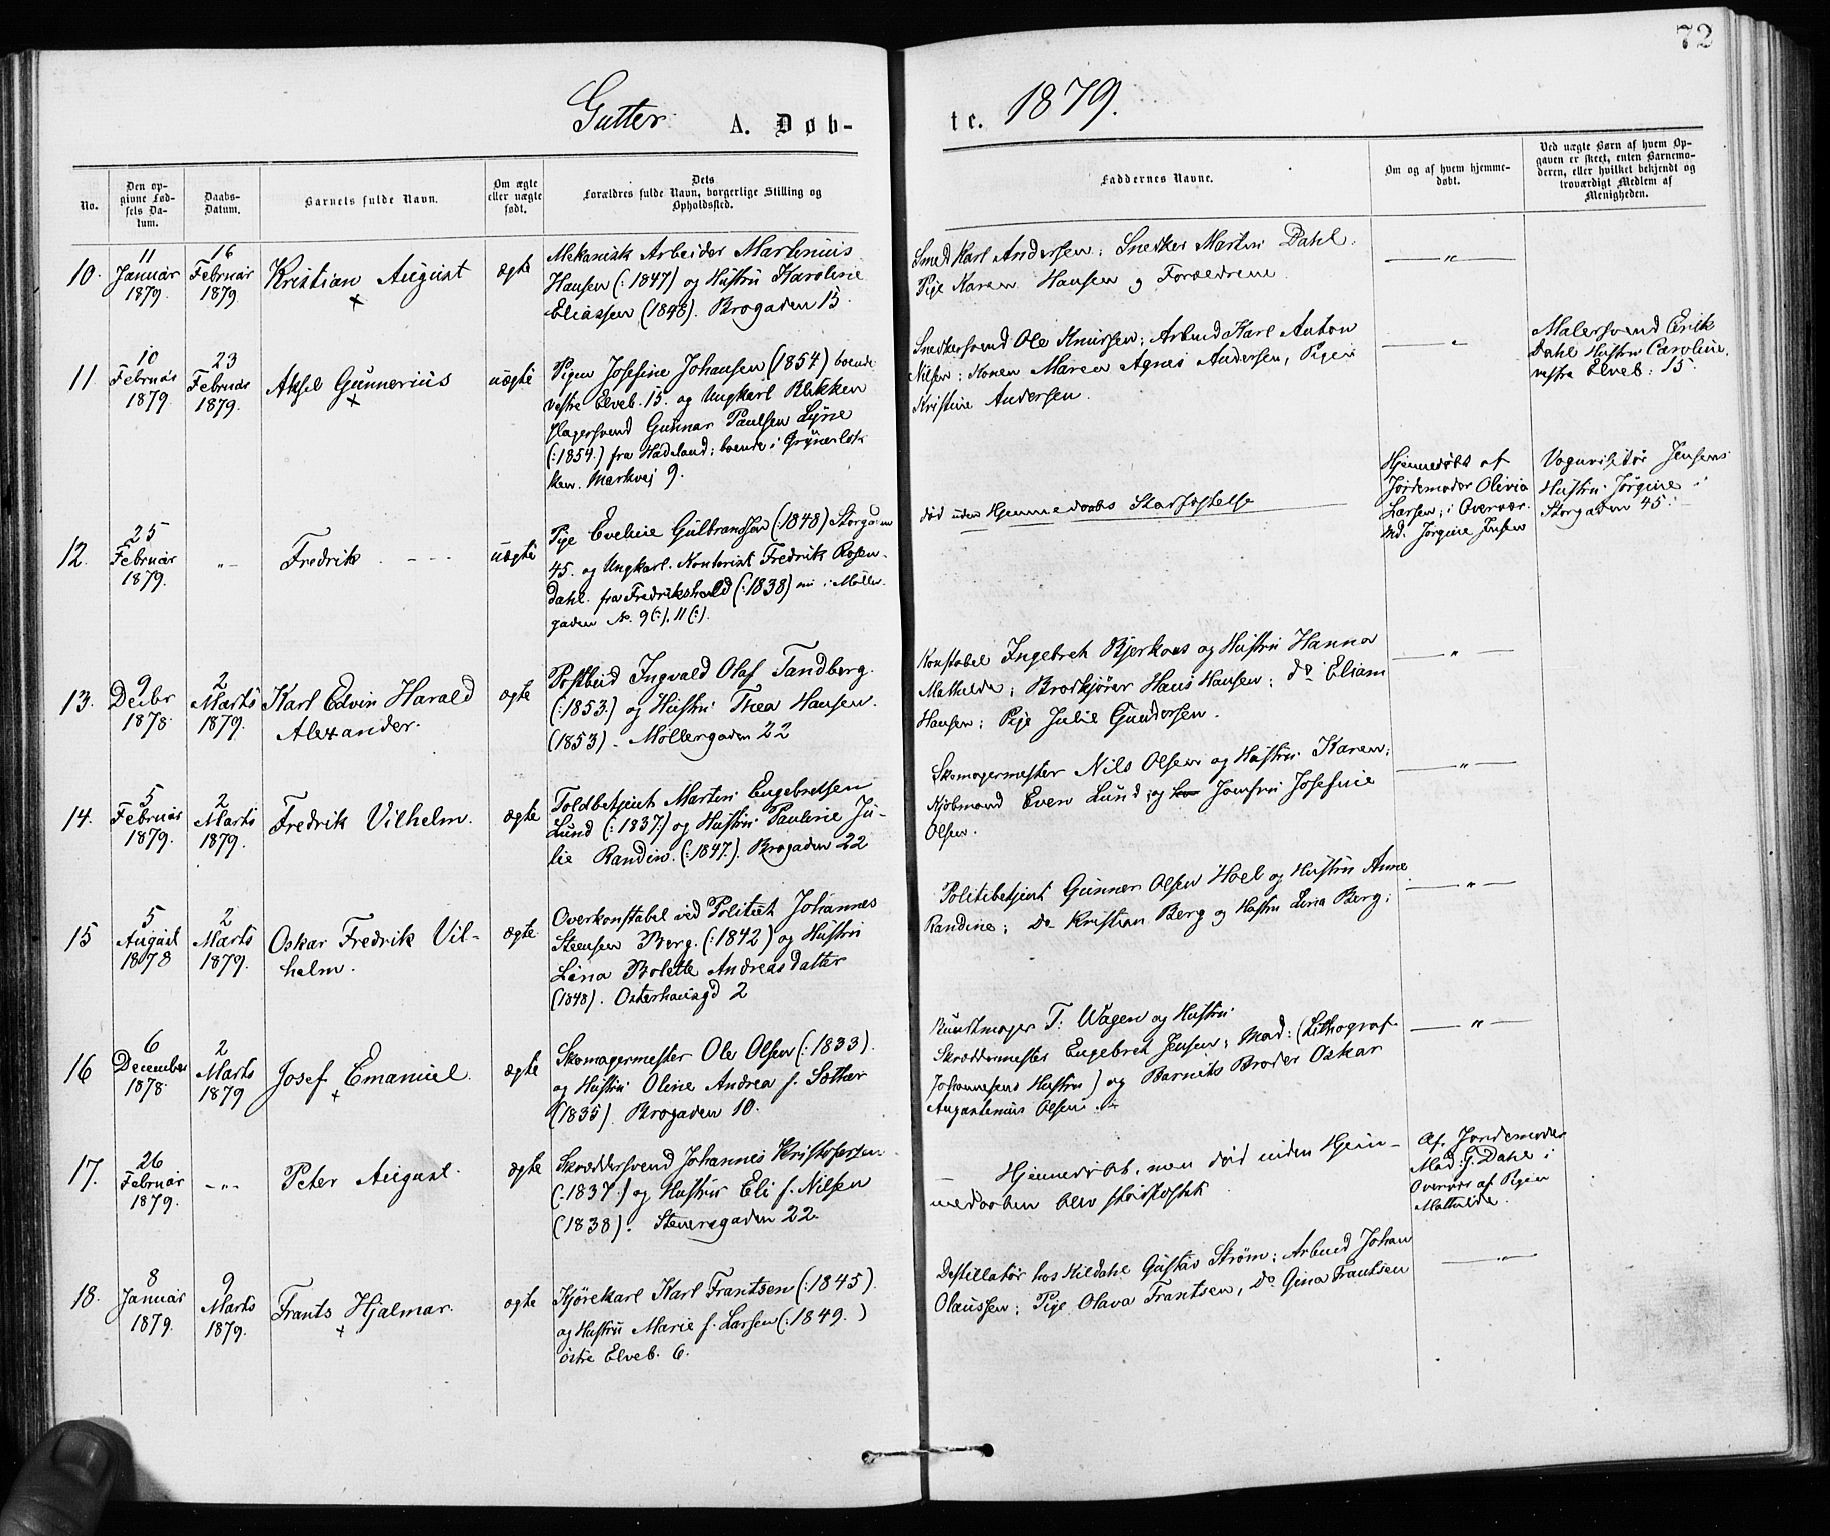 72
Gutter A. Døb-
te. 1879.
No.
Den op-
givne Fød-
sels Da-
tum.
Daabs-
Datum.
Barnets fulde Navn.
Om ægte
eller uægte
født.
Dets
Forældres fulde Navn, borgerlige Stilling og
Opholdssted.
Faddernes Navne.
Om og af hvem hjemme-
døbt.
Ved uægte Børn af hvem Op-
gaven er skeet, enten Barnemo-
deren, eller hvilket bekjendt og
troværdigt Medlem af
Menigheden.
10.
11
Januar
1879.
16
Februar
1879.
Kristian August
×
ægte
Mekanisk Arbeider Martenius
Hansen (: 1847) og Hustru Karoline
Eliassen (1848). Brogaden 15.
Smed Karl Andersen; Snedker Martin Dahl.
Pige Karen Hansen og Forældrene.
— " —
11
10
Februar
1879.
23
Februar
1879.
Aksel Gunnerius
×
uægte
Pigen Josefine Johansen (1854) boende
vestre Elveb. 15. og Ungkarl Blikken
slagersvend Gunnar Paulsen Lyne
(: 1854.) fra Hadeland; boende i Grünerløk
ken. Markvej 9.
Snedkersvend Ole Knutsen; Arbmd Karl Anton
Nilsen; Konen Maren Agnes Andersen, Pigen
Kristine Andersen.
— " —
Malersvend Erik
Dahl Hustru Caroline,
vestre Elveb: 15.
12.
25
Februar
1879.
"
Fredrik
uægte
Pige Eveline Gulbrandsen (: 1848) Storgaden
45. og Ungkarl. Kontorist Fredrik Rosen-
dahl. fra Fredrikshald (: 1838) nu i Møller-
gaden No. 9 (:), 11 (:).
død uden Hjemmedaabs Stadfæstelse
Hjemmedøbt af
Jordemoder Olivia
Larsen; i Overvær.
Md. Jørgine Jensen
Vognvisitør Jensens
Hustru Jørgine i
Storgaden 45.
13.
9
Decbr
1878.
2
Marts
1879.
Karl Edvin Harald
Alexander.
ægte
Postbud Ingvald Olaf Tandberg.
(: 1853.) og Hustru Thea Hansen.
(1853). Møllergaden 22
Konstabel Ingebret Bjerkaas og Hustru Hanna
Mathilde; Brødkjører Hans Hansen; do Eliam
Hansen; Pige Julie Gundersen.
— " —
14.
5
Februar
1879.
2
Marts
1879.
Fredrik Vilhelm.
ægte
Toldbetjent Martin Engebretsen
Lund (: 1837.) og Hustru Pauline Ju-
lie Randin. (: 1847.). Brogaden 22
Skomagermester Nils Olsen og Hustru Karen;
Kjøbmand Even Lund; og Jomfru Josefine
Olsen.
— " —
15
5
August
1878
2
Marts
1879.
Oskar Fredrik Vil-
helm.
ægte
Overkonstabel ved Politiet Johannes
Steensen Berg. (: 1842) og Hustru
Lina Bolette Andreasdatter
(1848). Osterhausgd 2
Politibetjent Gunner Olsen Hoel og Hustru Anne
Randine; Do Kristian Berg og Hustru Lina Berg;
— " —
16
6
December
1878.
2
Marts
1879
Josef Emanuel.
×
ægte
Skomagermester Ole Olsen (: 1833).
og Hustru Oline Andrea f. Sother
(1835). Brogaden 10.
Buntmager T: Wagen og Hustru
Skræddermester Engebret Jensen; Mad: (Lithograf
Johannesens Hustru) og Barnets Broder Oskar
Augustenius Olsen.
— " —
17.
26
Februar
1879.
"
Peter August.
ægte
Skræddersvend Johannes Kristofersen
(: 1837:) og Hustru Eli f. Nilsen
(1838). Steenersgaden 22.
Hjemmedøbt, men død inden Hjem-
medaaben blev stadfæstet.
Af Jordemoder
Mad: G. Dahl i
Overvær af Pigen
Mathilde.
18.
8
Januar
1879.
9
Marts
1879.
Frants Hjalmar.
×
ægte
Kjørekarl Karl Frantsen (: 1845).
og Hustru Marie f. Larsen (: 1849.)
østre Elveb. 6.
Destillatør hos Kildahl Gustav Strøm; Arbmd Johan
Olaussen; Pige Olava Frantsen, Do Gina Frantsen
— " —